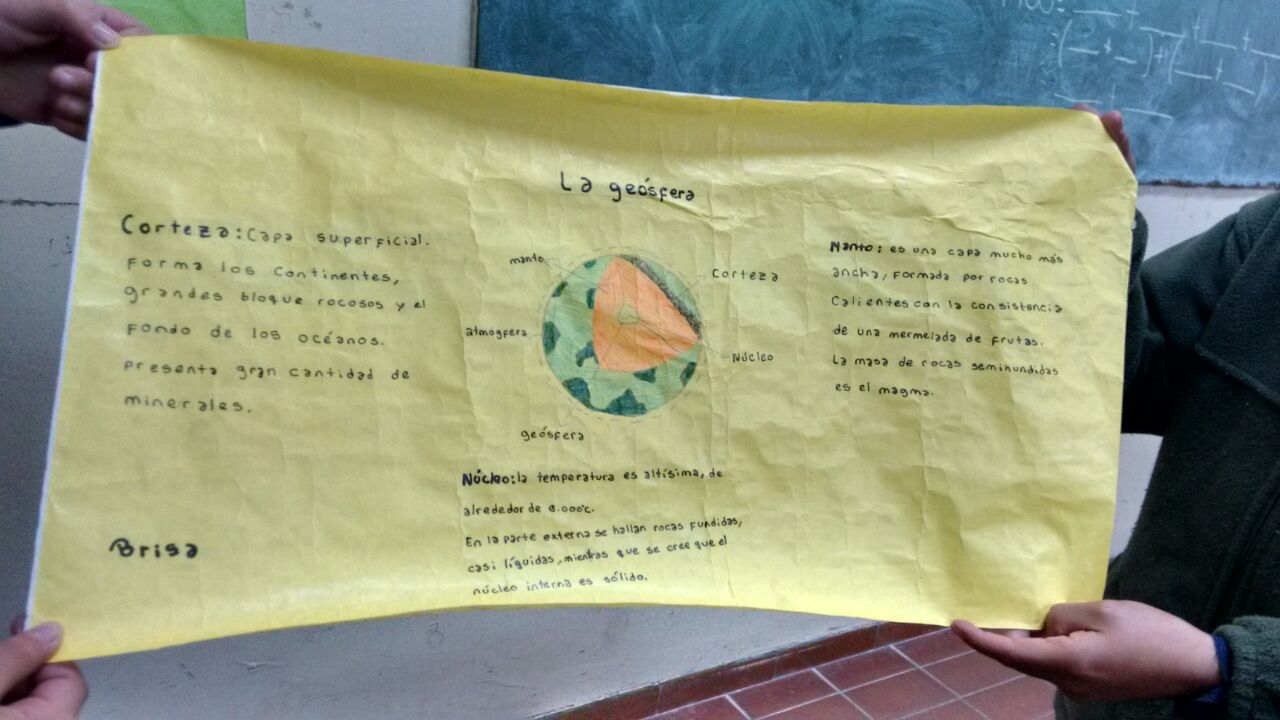 La geósfera
Corteza: Capa superficial.
Forma los continentes,
grandes bloque rocosos y el
fondo de los océanos.
Presenta gran cantidad de
minerales.
manto
Corteza
atmósfera
Núcleo
geósfera
Manto: es una capa mucho más
ancha, formada por rocas
Calientes con la consistencia
de una mermelada de frutas.
La masa de rocas semihundidas
es el magma.
Núcleo: la temperatura es altísima, de
alrededor de 8.000°c.
En la parte externa se hallan rocas fundidas,
casi líquidas, mientras que se cree que el
núcleo interna es sólido.
Brisa